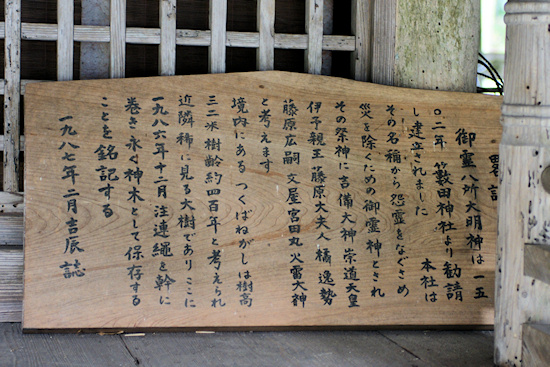 畧記
御霊八所大明神は一五
〇二年簸田神社より勧請
し建立されました 本社は
その名稲から怨霊をなぐさめ
災を除くための御霊神とされ
その祭神に吉備大神崇道天皇
伊予親王藤原大夫人橘逸勢
藤原広嗣文屋宮田丸火雷大神
と考えます
境内にあるつくばねがしは樹高
三二米樹齢約四百年と考えられ
近隣稀に見る大樹でありここに
一九八六年十二月注連繩を幹に
巻き永ぐ神木として保存する
ことを銘記する
一九八七年二月吉辰誌